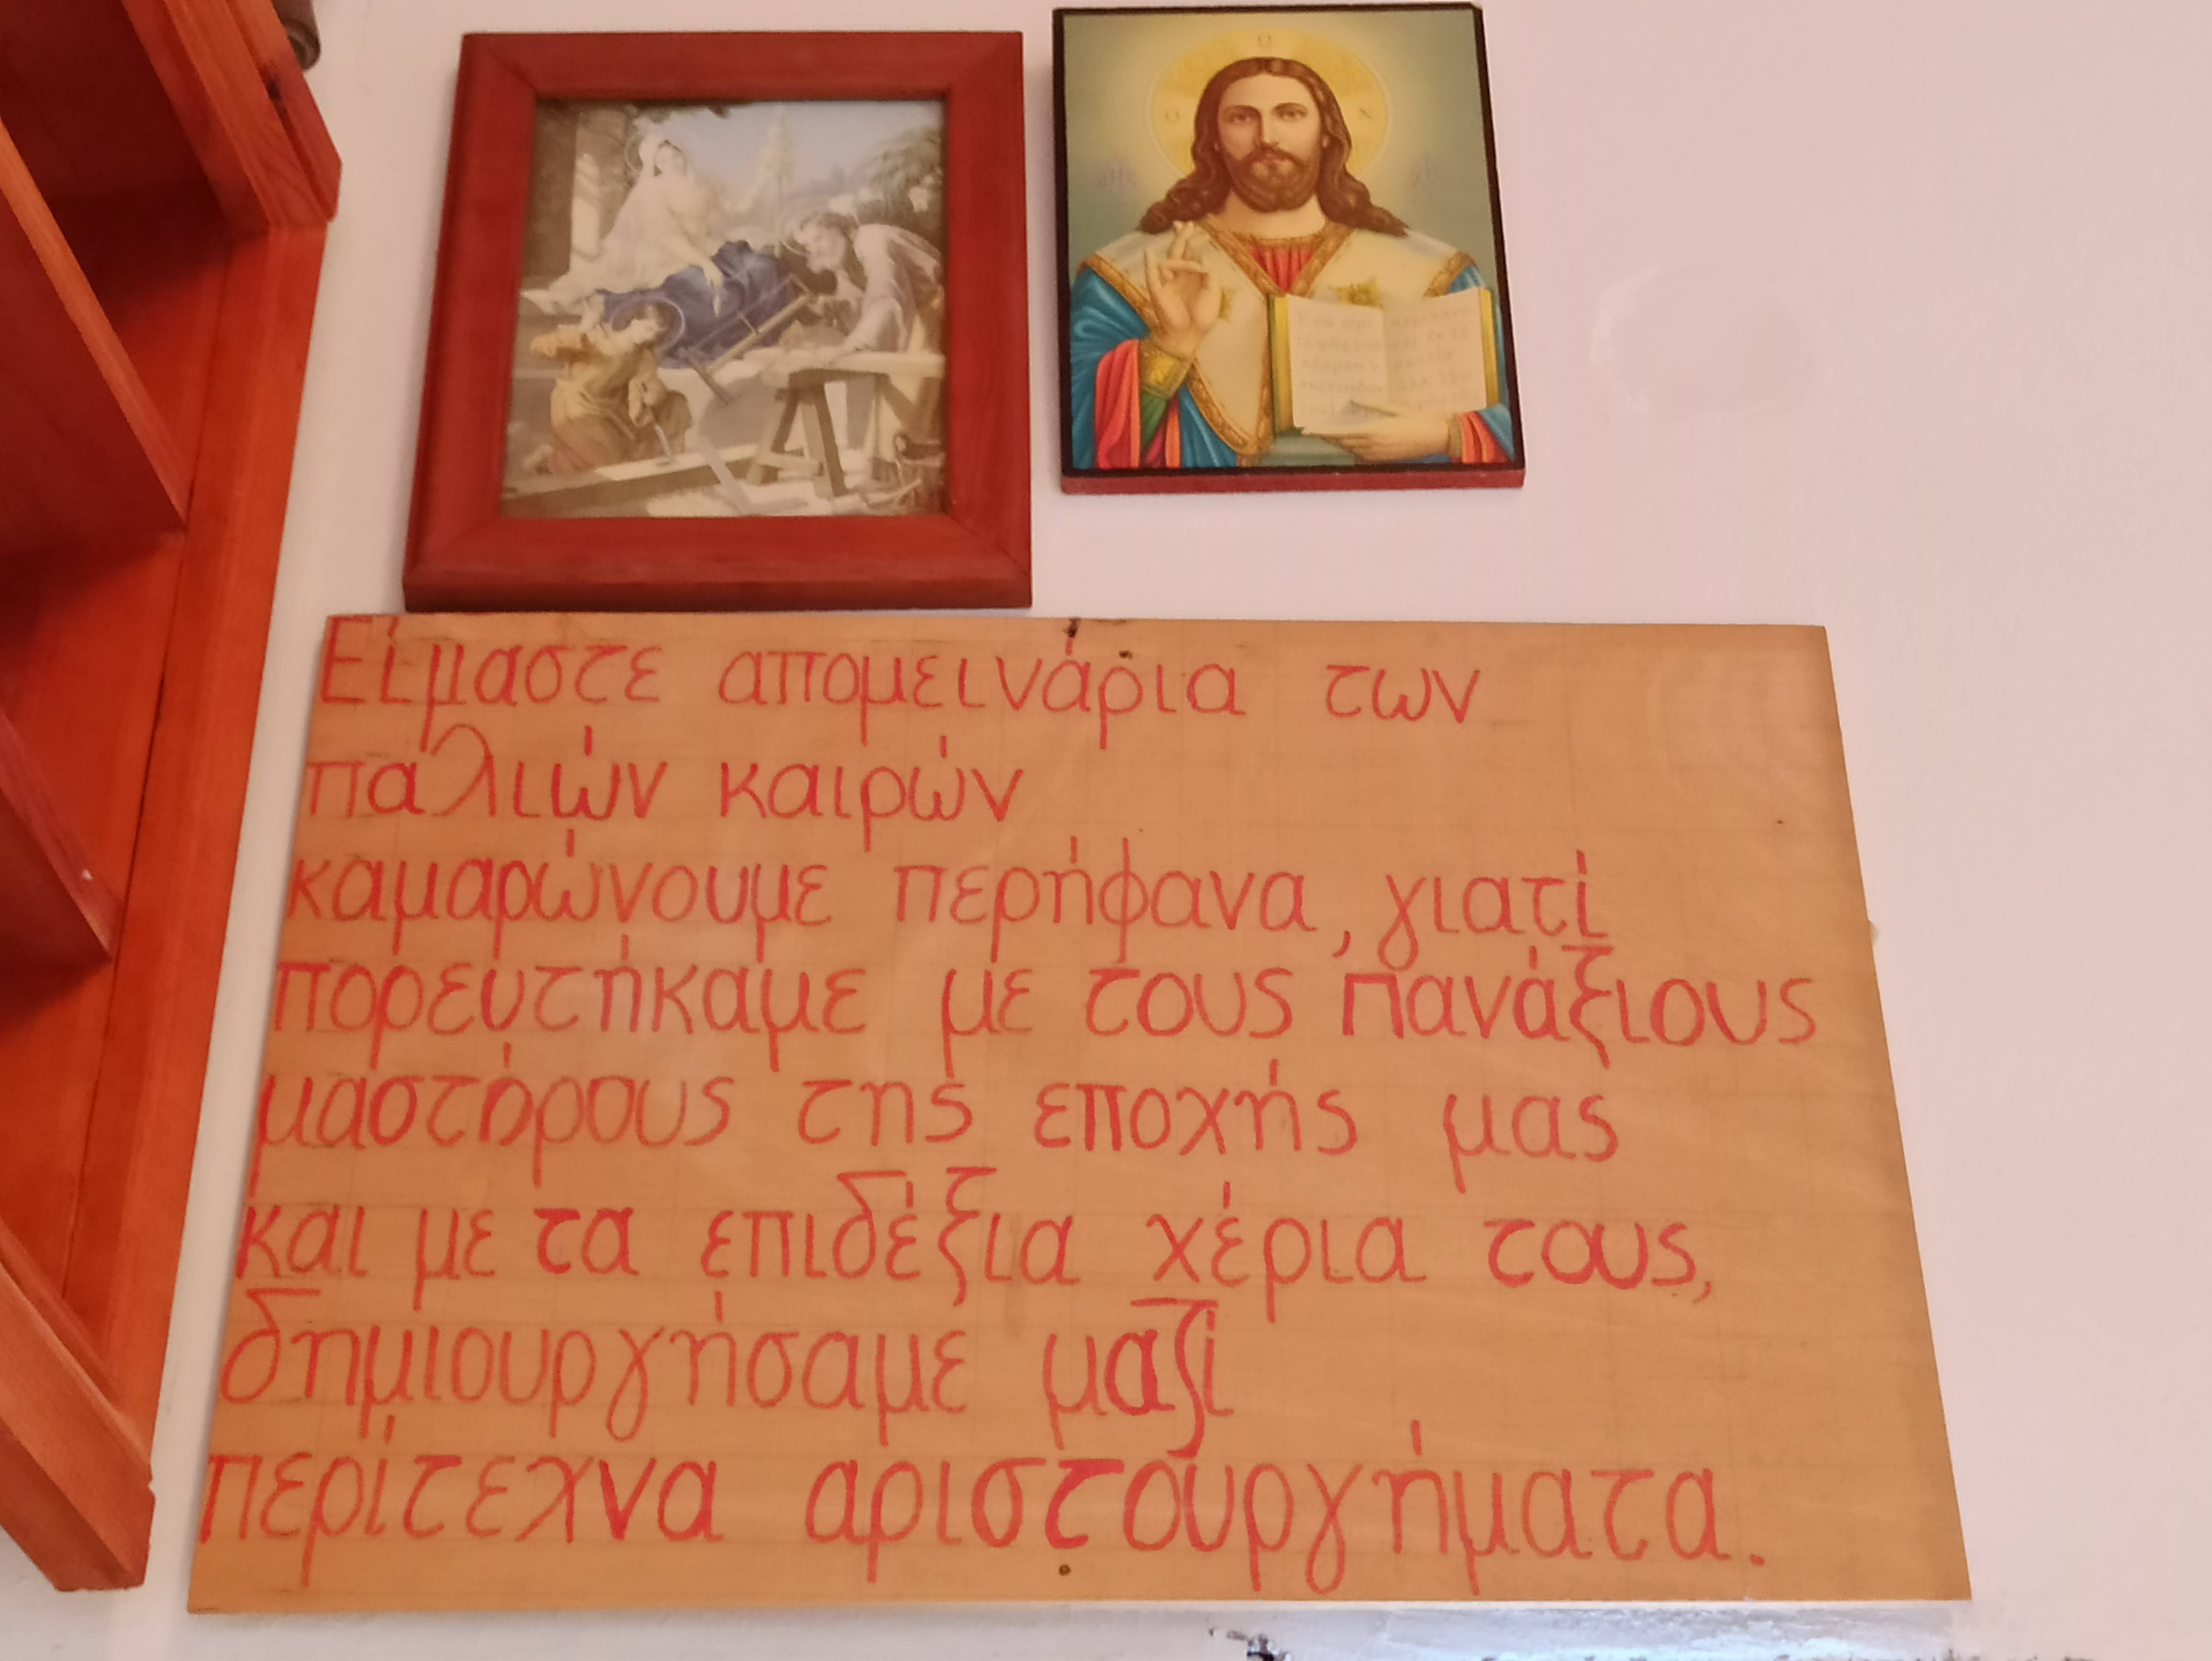 Ο
Ο Ν
Είμαστε απομεινάρια των
παλιών καιρών
καμαρώνουμε περήφανα, γιατί
πορευτήκαμε με τους πανάξιους
μαστόρους της εποχής μας
και με τα επιδέξια χέρια τους,
δημιουργήσαμε μαζί
περίτεχνα αριστουργήματα.